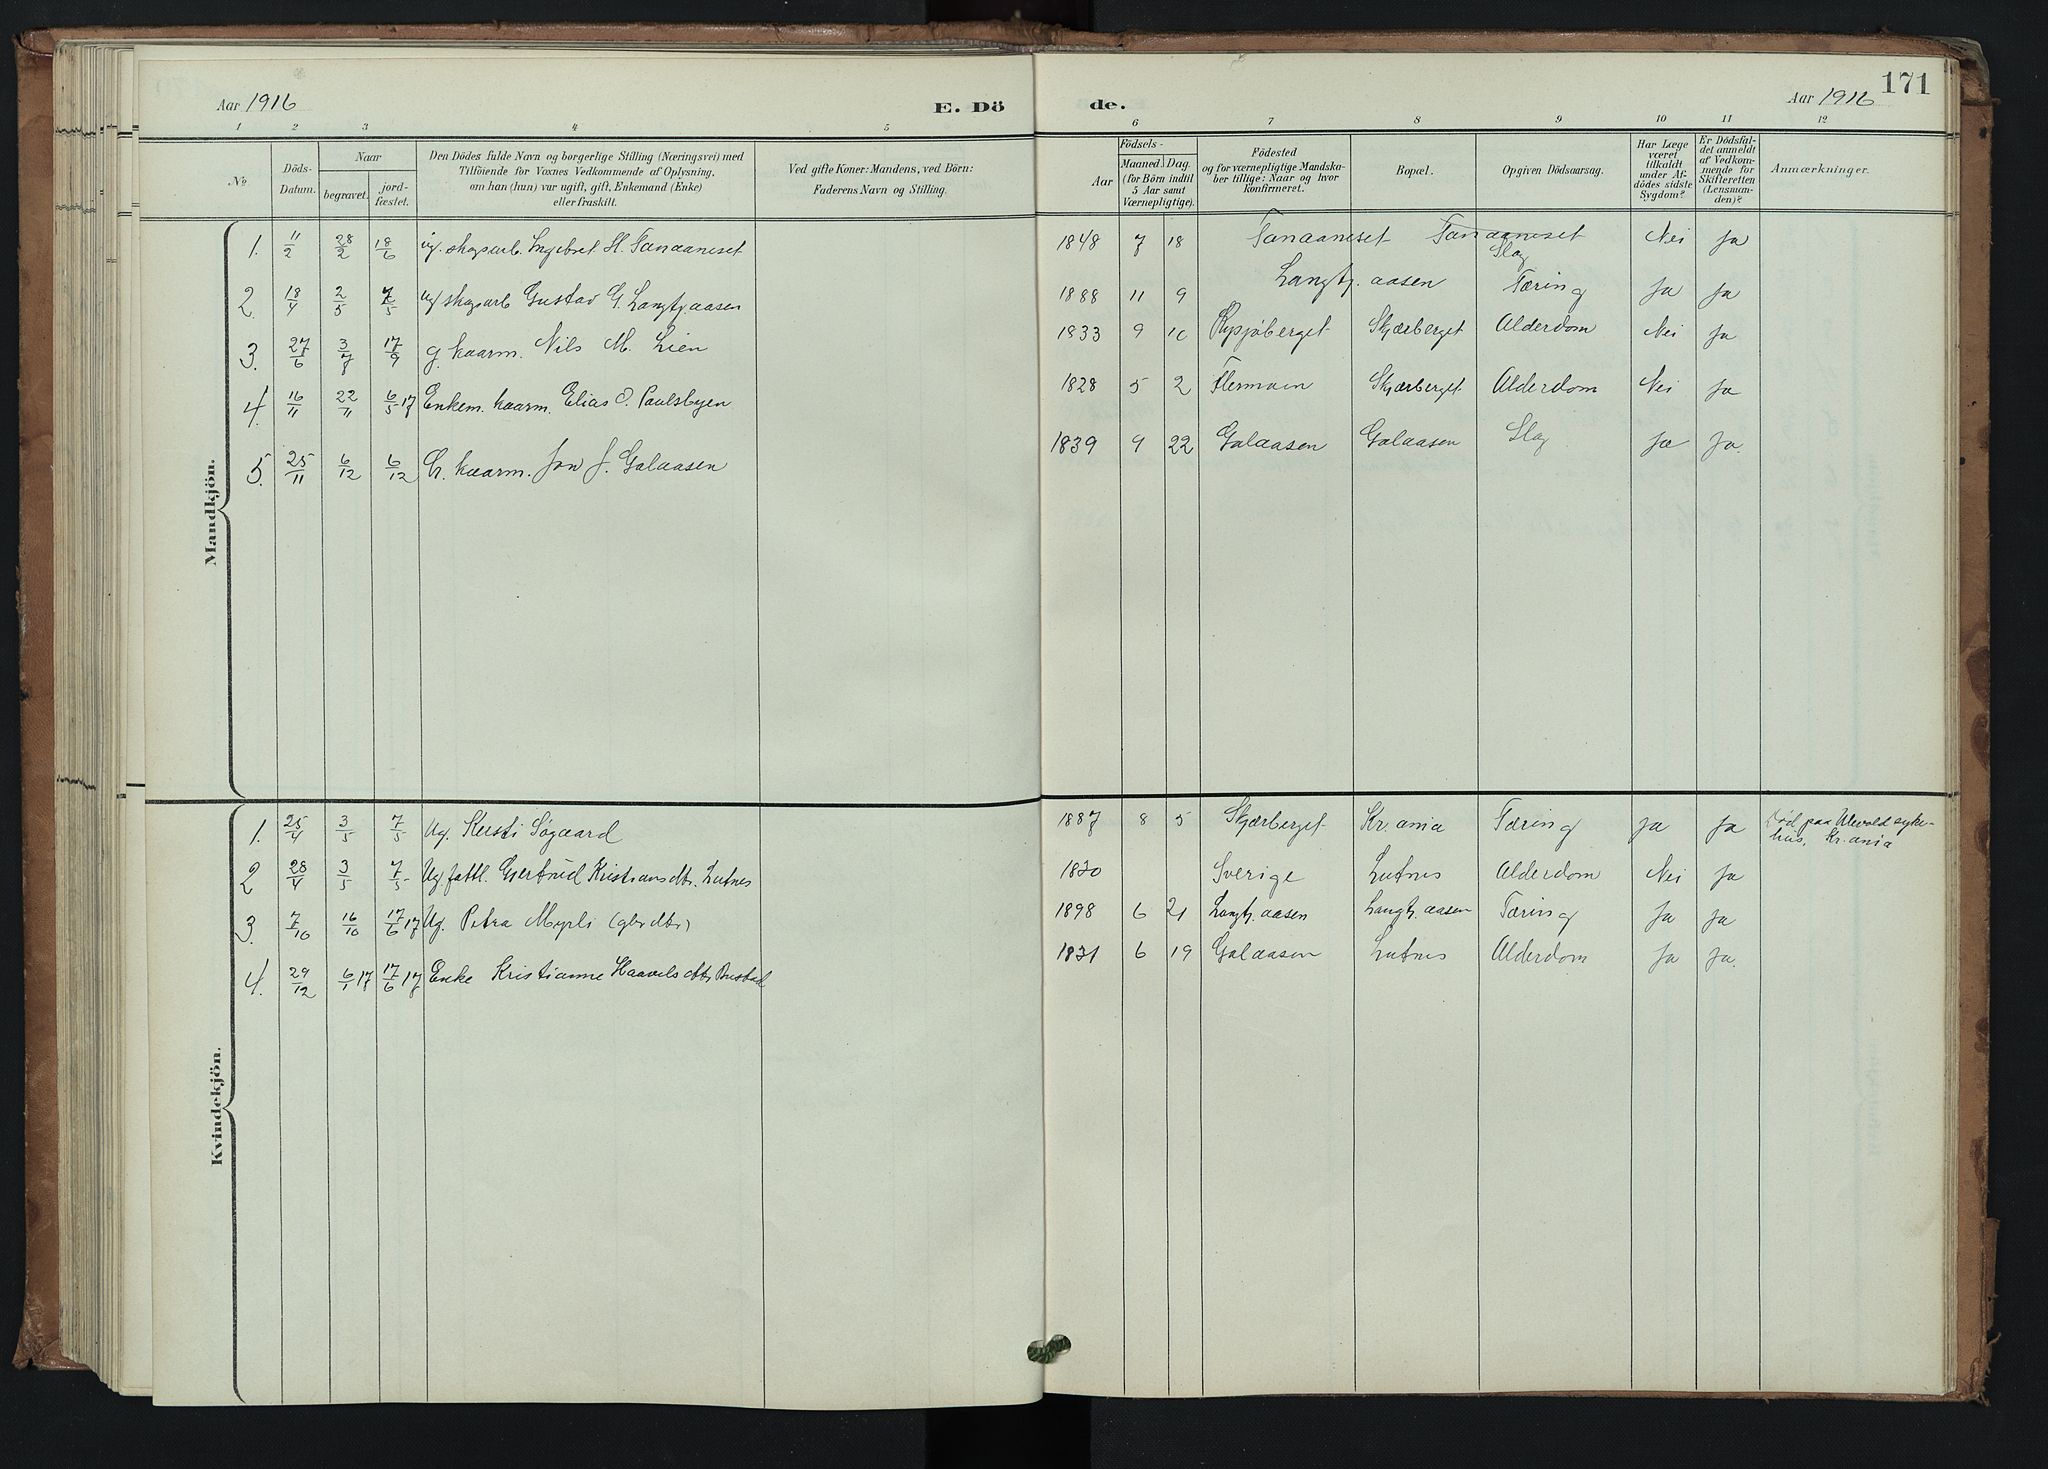 Aar 1916 E. Dö de. Aar 1916 171
1 2 3 4 5 6 7 8 9 10 11 12
№
Döds-
Datum.
Naar
begravet.
jord-
fæstet.
Den Dödes fulde Navn og borgerlige Stilling (Næringsvei) med
Tilföiende for Voxnes Vedkommende af Oplysning,
om han (hun) var ugift, gift, Enkemand (Enke)
eller fraskilt.
Ved gifte Koner: Mandens, ved Börn:
Faderens Navn og Stilling.
Födsels-
Aar
Maaned. Dag.
(for Börn indtil
5 Aar samt
Værnepligtige).
Födested
og for værnepligtige Mandska-
ber tillige: Naar og hvor
konfirmeret.
Bopæl.
Opgiven Dödsaarsag.
Har Læge
været
tilkaldt
under Af-
dödes sidste
Sygdom?
Er Dödsfal-
det anmeldt
af Vedkom-
mende for
Skifteretten
(Lensman-
den)?
Anmærkninger.
Mandkjön.
1. 11/2 28/2 18/6 ug. skogsarb. Ingebret H. Tanaaneset 1848 7 18 Tanaaneset Tanaaneset Slag Nei Ja
2. 18/4 2/5 7/5 ug skogsarb Gustav G. Langtjaasen 1888 11 9 Langtj.aasen Tæring Ja Ja
3. 27/6 3/7 17/9 g. kaarm. Nils M. Lien 1833 9 10 Rysjøberget Skjærberget Alderdom Nei Ja
4. 16/11 22/11 6/5 17 Enkem. kaarm. Elias O. Paulsbyen 1828 5 2 Flermoen Skjærberget Alderdom Nei Ja
5. 25/11 6/12 6/12 G. kaarm. Jon J. Galaasen 1839 9 22 Galaasen Galaasen Slag Ja Ja.
Kvindekjön.
1. 25/4 3/5 7/5 Ug. Kersti Søgaard 1887 8 5 Skjærberget Kr.ania Tæring Ja Ja Død paa Ulevold syke-
hus, Kr.ania
2 28/4 3/5 7/5 Ug. fattl. Gjertrud Kristiansdtr. Lutnes 1830 Sverige Lutnes Alderdom Nei Ja
3. 7/10 16/10 17/6 17 Ug. Petra Myrli (gbr dtr) 1898 6 21 Langtj.aasen Langtj.aasen Tæring Ja Ja
4. 29/12 6/1 17 17/6 17 Enke Kristianne Haavelsdtr. Bustad 1831 6 19 Galaasen Lutnes Alderdom Ja Ja.